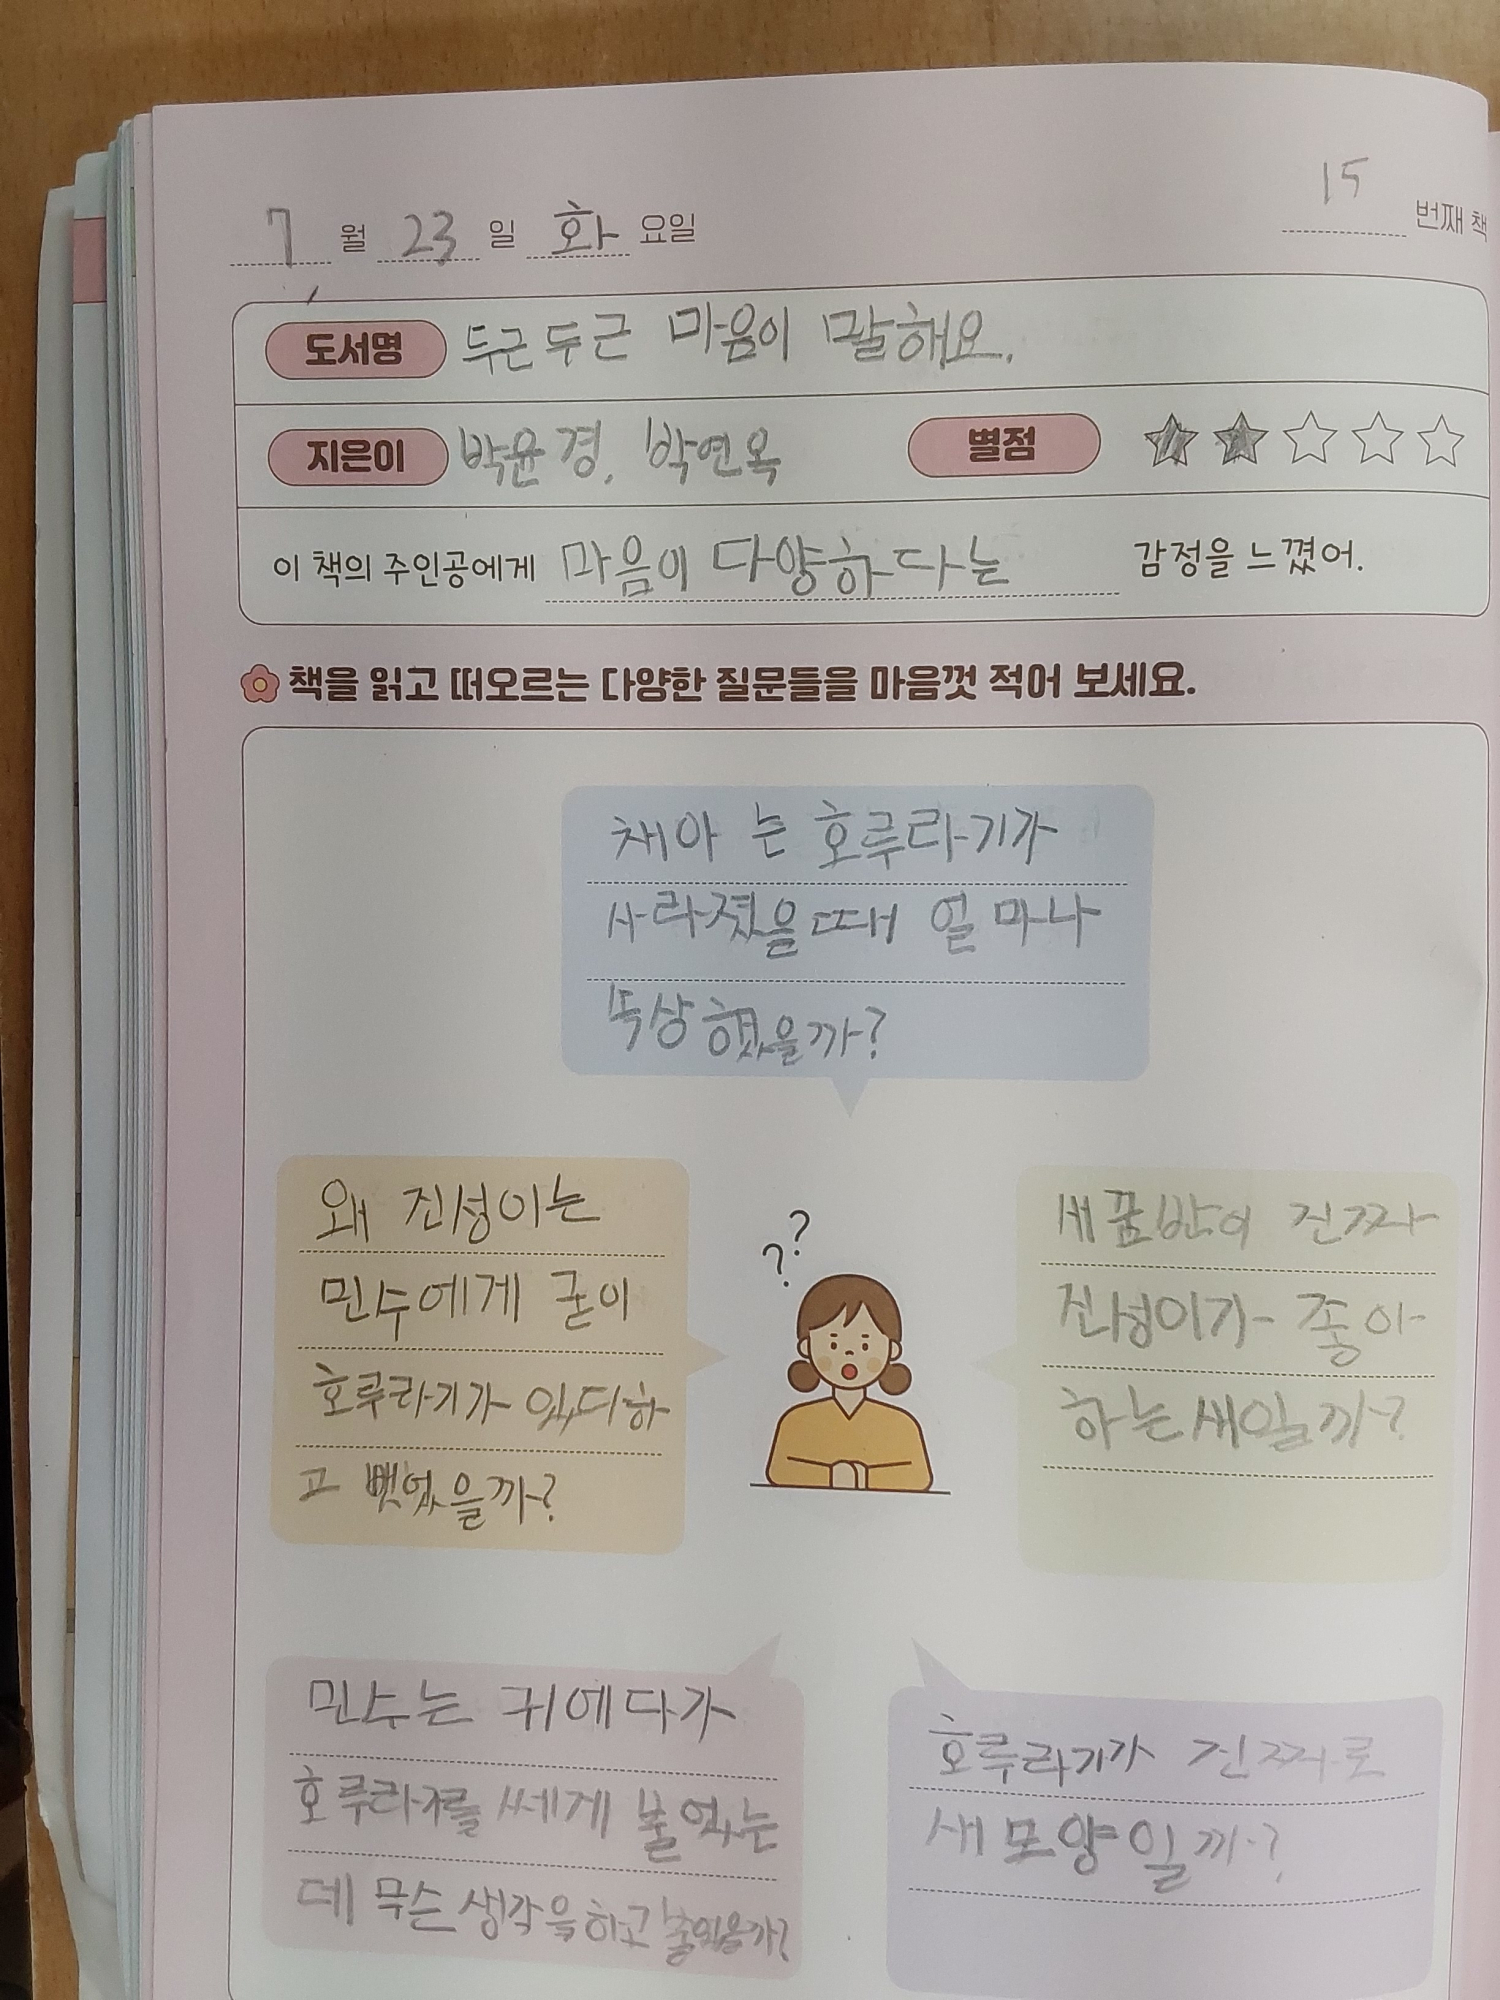 15
7 월 23 일 화 요일
번째 책
도서명 두근두근 마음이 말해요.
지은이 박윤경, 박연옥 별점
이 책의 주인공에게 마음이 다양하다는 감정을 느꼈어.
책을 읽고 떠오르는 다양한 질문들을 마음껏 적어 보세요.
채아 는 호루라기가
사라졌을때 얼마나
뚝상했을까?
왜 진성이는
민수에게 굳이
호루라기가 있다하
고 뺏었을까?
? ?
진짜
진성이가 좋아
하는새일까?
민수는 귀에다가
호루라기를 쎄게 불었는
데 무슨 생각을하고 불었을까?
호루라기가 진짜로
새모양일까?